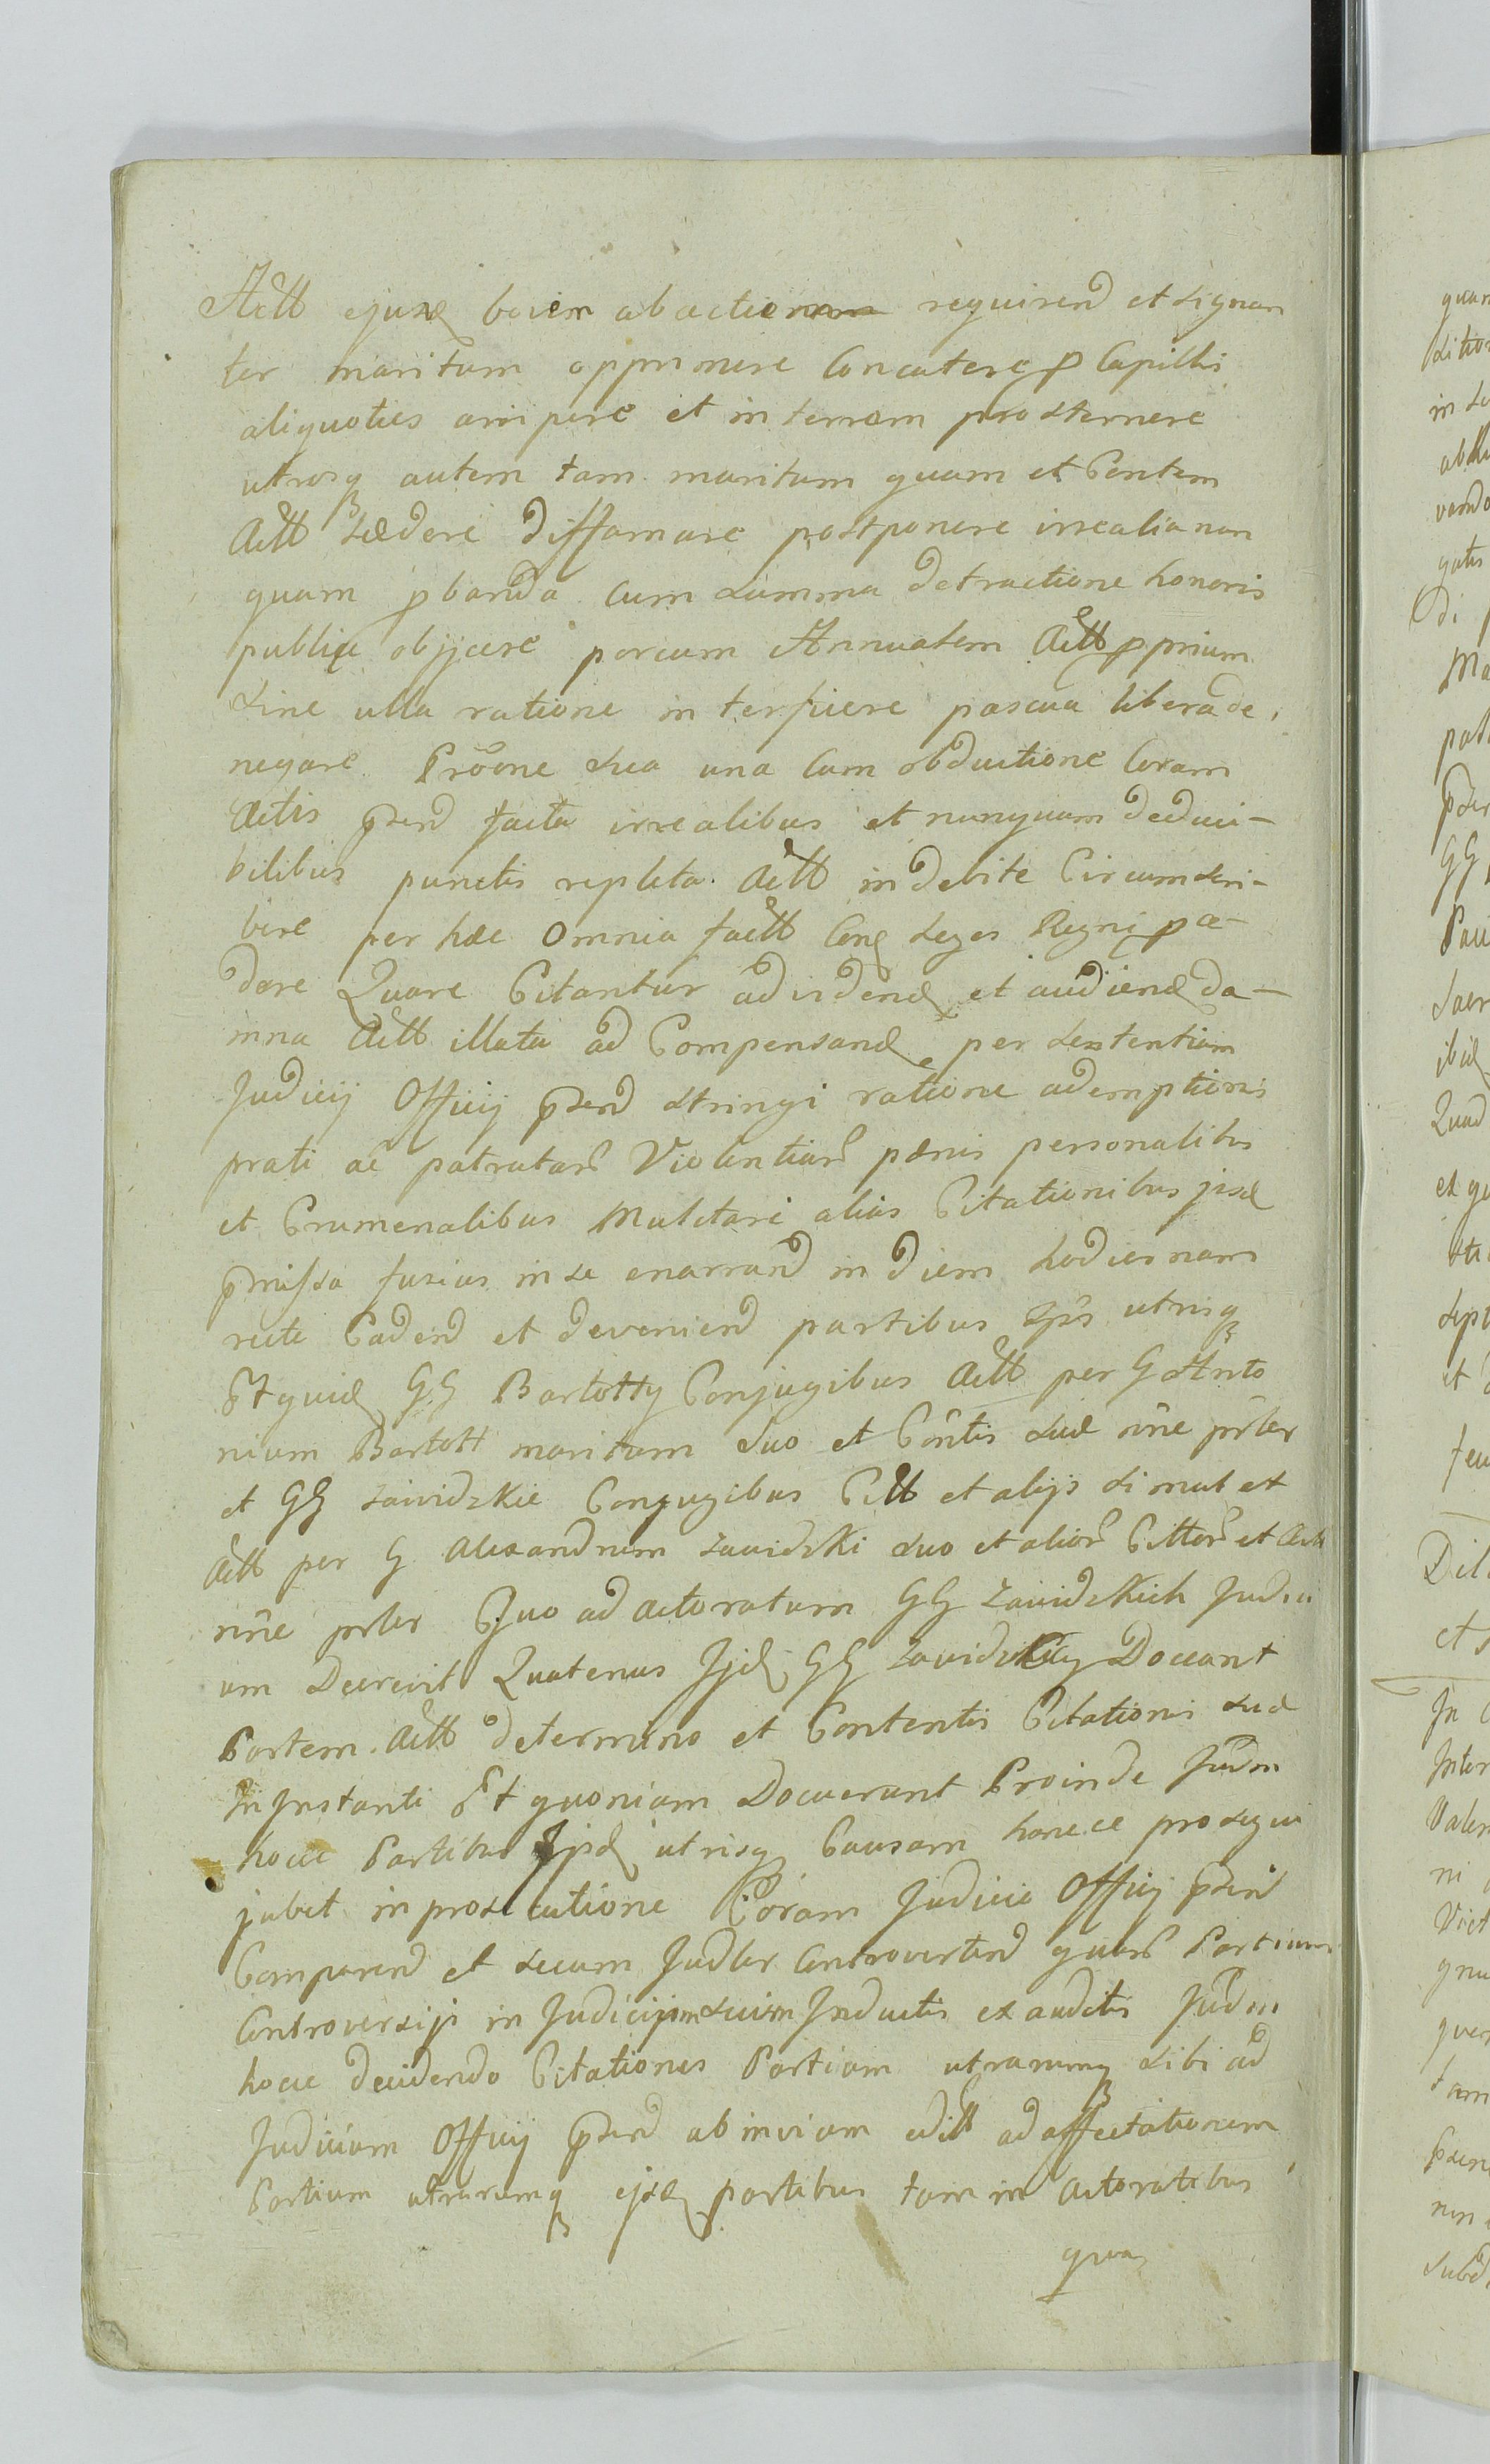 Actt ejusd bovem abactionem requirend et signan
ter maritum opprimere Concutere p Capillis
aliquoties arripere et in terram prosternere
utrosq autem tam maritum quam et Contem
Actt lædere diffamare postponere irrealia nun
quam pbanda cum summa detractione honoris
publice objicere porcum Annualem Actt pprium
sine ulla ratione interficere pascua libera de,
negare Prõone sua una cum obductione Coram
Actis pśend facta irrealibus et nunquam deduci-
bilibus punctis repleta Actt indebite Circumscri-
bere per hæc Omnia factt Conq Leges Regni pæ-
dere Quare Citantur ad vidend et audiend da-
mna Actt illata ad Compensand per sententiam
Judicij Officij pśend stringi ratione ademptionis
prati ac patratar Violentiar pænis personalibus
et Crumenalibus Mulctari alias Citationibus jisd
pmissa fusius in se enarrand in diem hodiernam
recte Cadend et deveniend partibus Ipis utrisq
Et quid GG Bartotty Conjugibus Actt per G Anto
nium Bartott maritum suo et Contis suæ nñe prlter
et GG Zawidzkie Conjugibus Citt et alijs simul et
Actt per G Alexandrum Zawidzki suo et alior Cittor et Actt
nñe prlter Quo ad actoratum GG Zawidzkich Judici
um Decrevit Quatenus Ijd GG Zawidzkcy Doceant
Partem Actt de termino et Contentis Citationis suæ
In Instanti Et quoniam Docuerunt Proinde Judm
hocce Partibus Ijsd utrisq Causam hancce prosequi
jubet in prosecutione Coram Judicio Officij pśend
Comparend et secum Judlter Controvertend quar Partium
Controversijs in Judicium suum Inductis exauditis Judm
hocce decidendo Citationes Partium utrarumq sibi ad
Judicium Officij pśend ab inviam editt ad affectationem
Partium utrarumq ejsd partibus tam in actoratibus
qua,